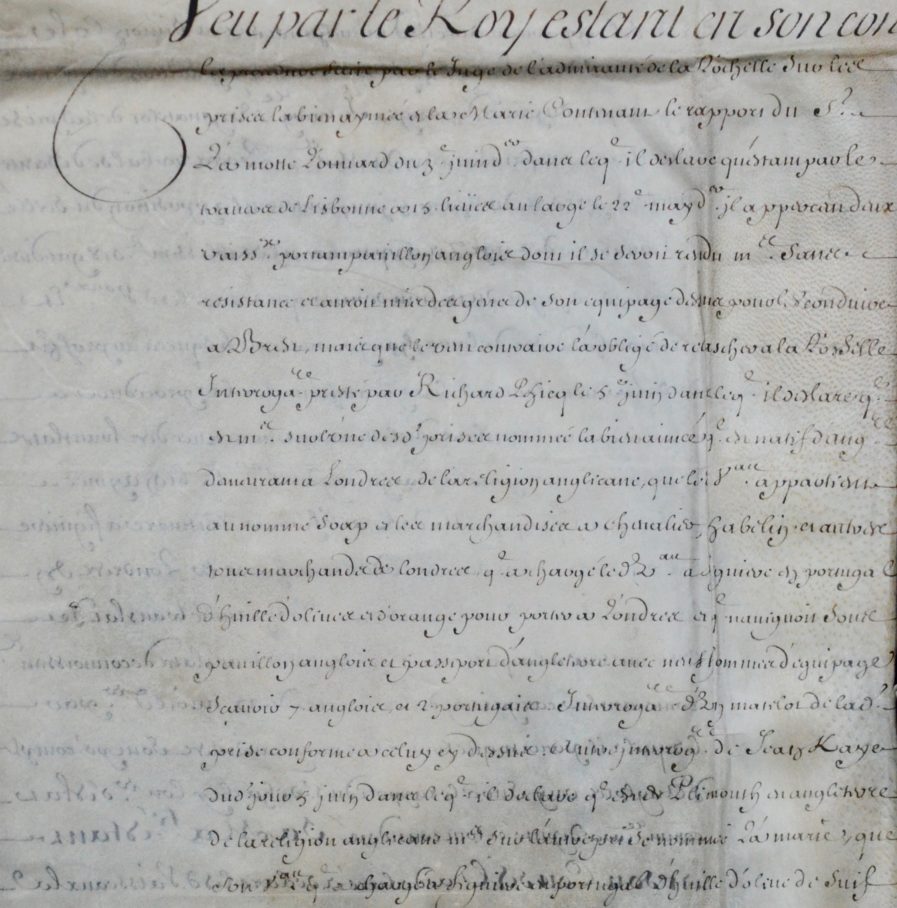 Veu par le Roy estant en son con
la procedure faite par le Juge de l'admirauté de la Rochelle sur les
prises la bien aymée & la Marie Contenant le rapport du Sr.
La motte du 3e juin dans leql. il declare qu'estant par le
travers de Lisbonne a 15 lieües au large le 22e may il apperceu deux
vaissx portant pavillon anglois dont il se seroit rendu me. sans
resistance et auroit mis des gens de son equipage dessus pour les conduire
a Brest, mais que le vent contraire l'a obligé de relascher a la Rochelle
Interroge presté par Richard le 5e juin dans leql. il declare q.
est me. sur l'une desd. prises nommée la bien aimée q. est natif d'angre
demeurant a Londres de la religion anglicane, que led. Vau. appartient
au nommé & les marchandises a et autres
tous marchands de londres q. a chargé led. Vau. a en portugal
d'huille d'olives et d'orange pour porter a Londres et q. navigoit sous
pavillon anglois et passeport d'angleterre avec neuf hommes d'equipage
Sçavoir 7 anglois, et 2 portugais. Interroge d'un matelot de lad.
prise conforme a celuy cy dessus. Autre interroge. de Jean Kaye
dud. jour 5 juin dans leql. il declare q. est de Plimouth en angleterre
de la religion anglicane me. sur l'autre prise nommée La marie, que
son Vau. a chargé en portugal d'huille d'olive de Suif